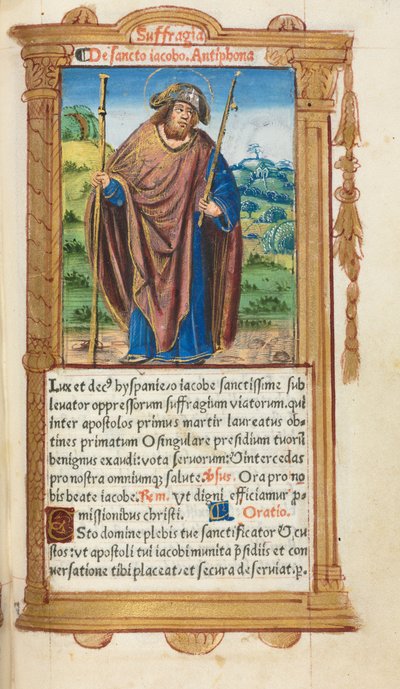 Suffragia
De sancto iacobo. Antiphona
Lux et decꝰ hyspanie/o iacobe sanctissime sub
leuator oppressorum suffragium viatorum. qui
inter apostolos primus martir laureatus ob-
tines primatum O singulare presidium tuorū
benignus exaudi: vota seruorum: & intercedas
pro nostra omniumqꝫ salute. ℣sus. Ora pro no
bis beate iacobe. ℟em. Vt digni efficiamur p̱
missionibus christi. Oratio.
ESto domine plebis tue sanctificator & cu
stos: vt apostoli tui iacobi munita p̄sidiis et con
uersatione tibi placeat. et secura deseruiat. p.